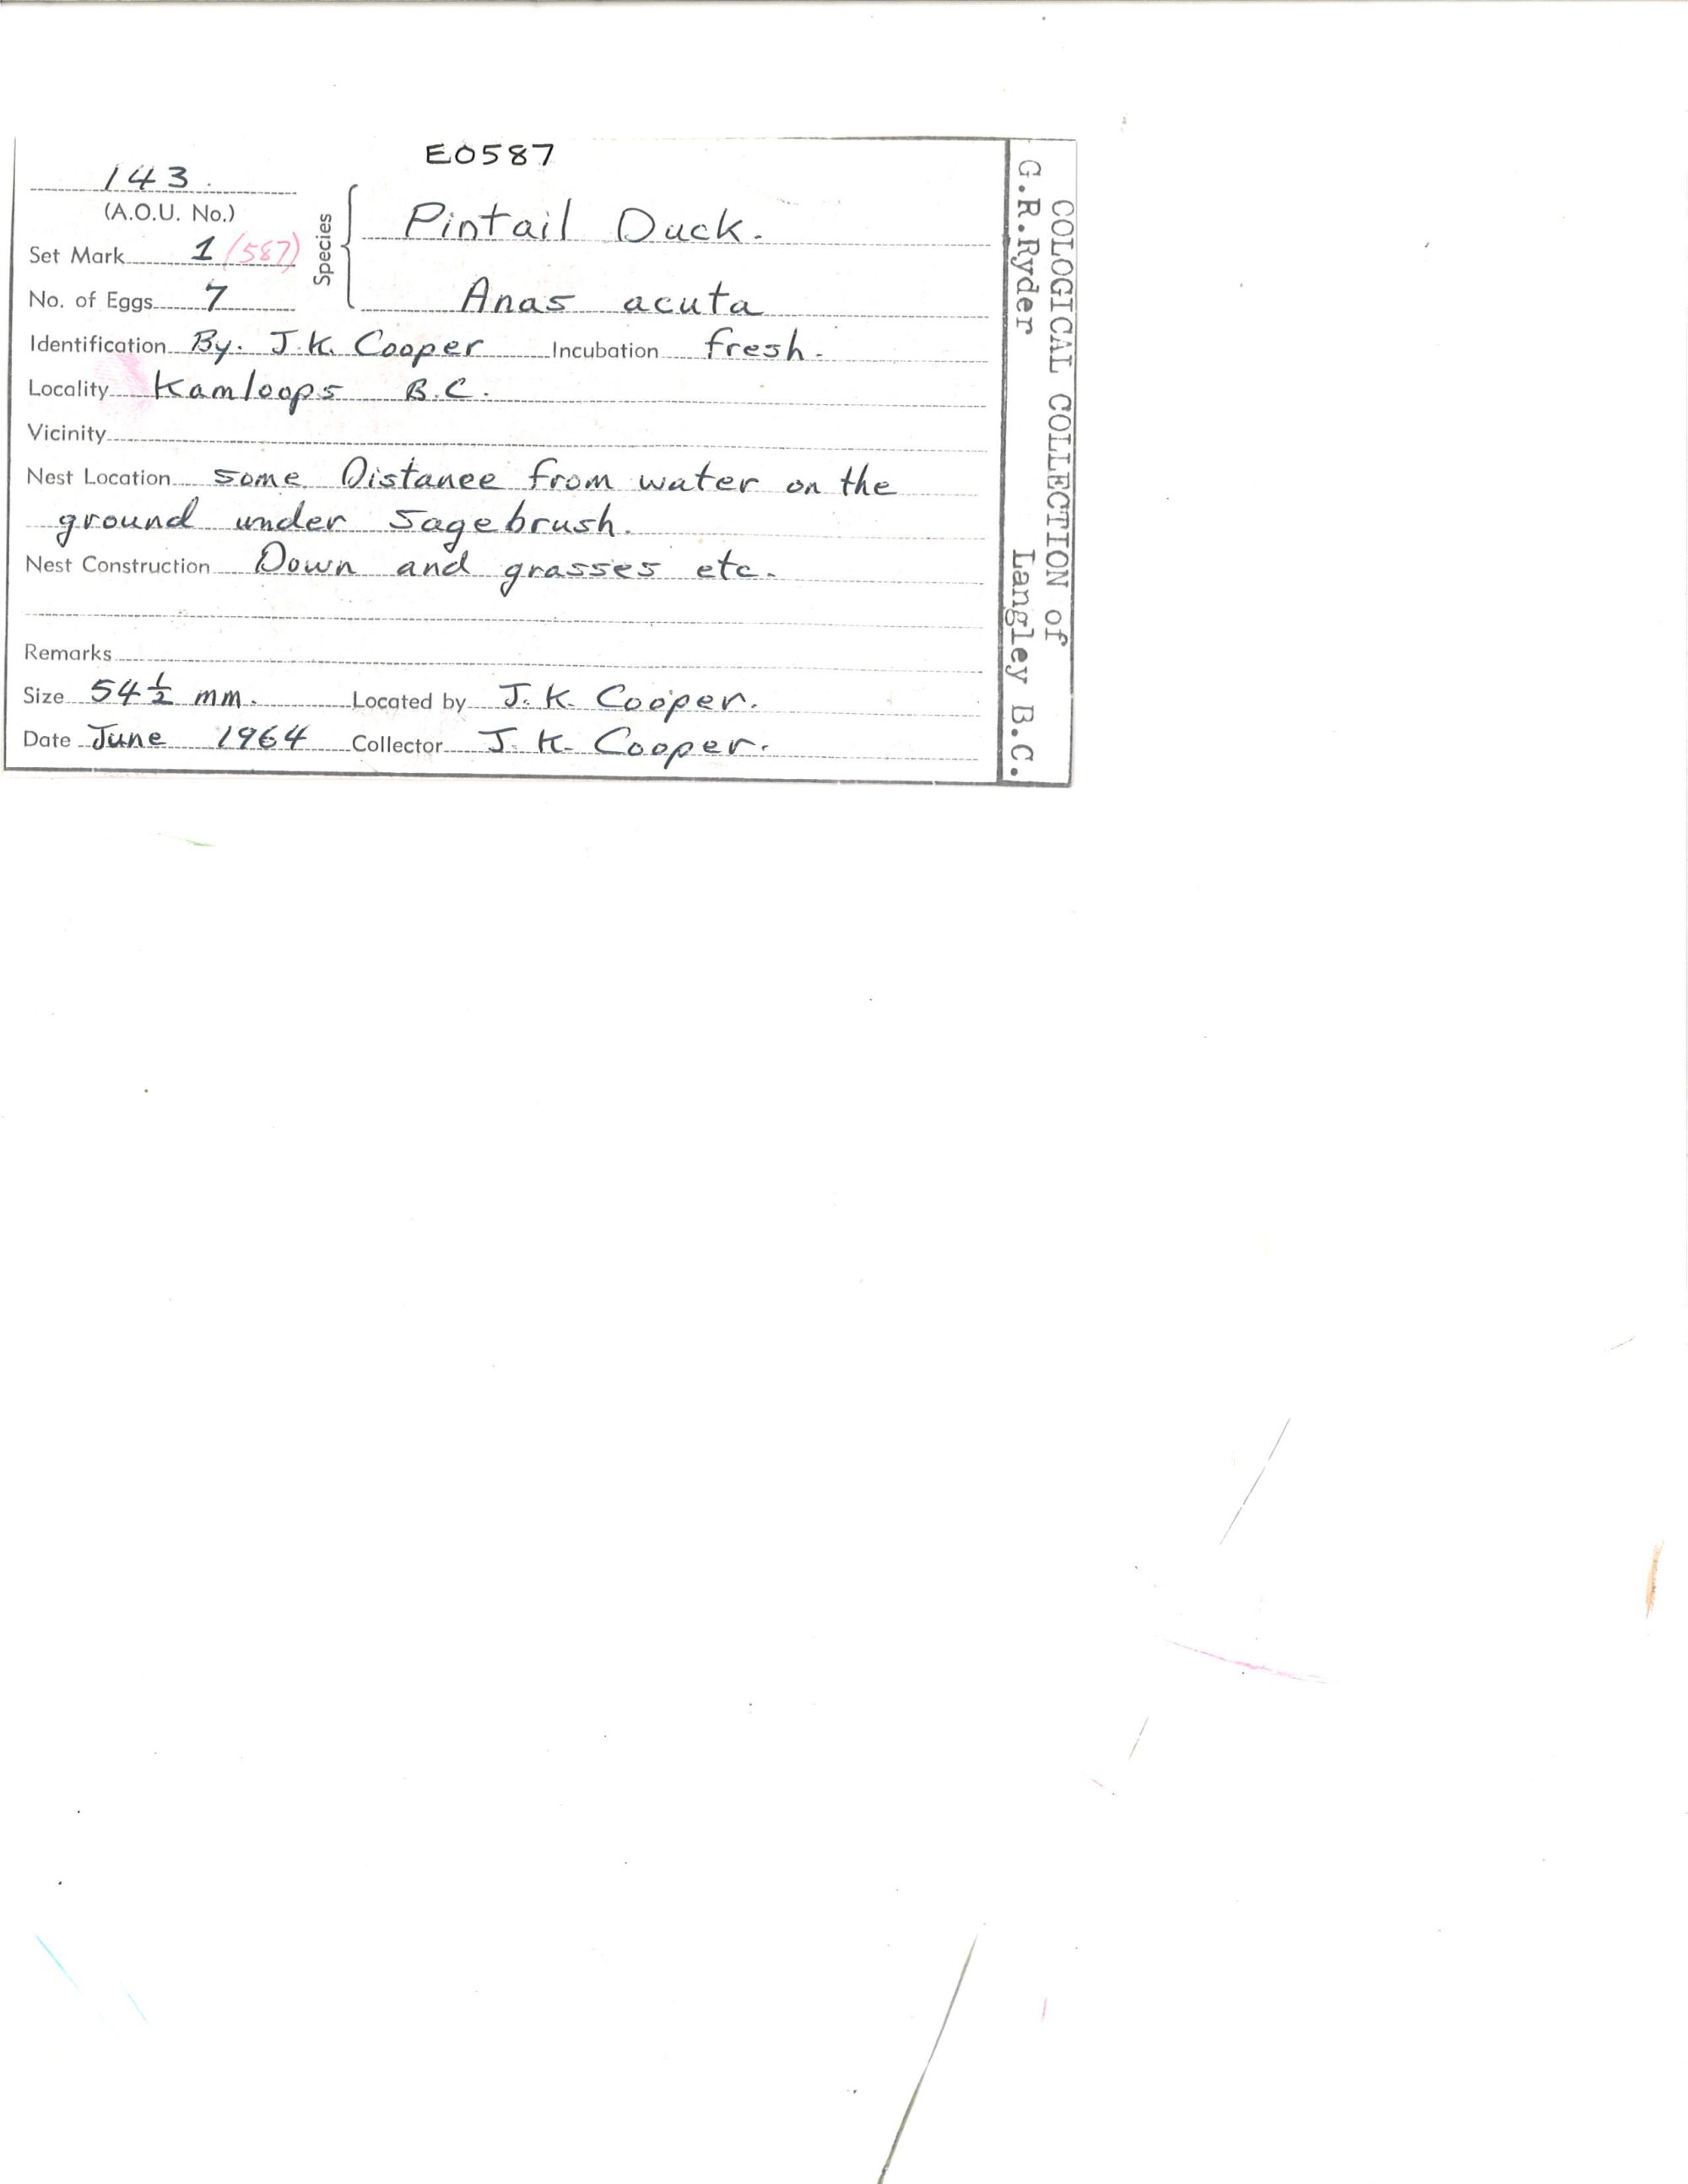 E0587
143.
(A.O.U. No.)
Species
Pintail Duck.
Anas acuta
Set Mark 1 (587)
No. of Eggs 7
Identification By. J.K. Cooper Incubation fresh.
Locality Kamloops B.C.
Vicinity
Nest Location some Distance from water on the
ground under sagebrush.
Nest Construction Down and grasses etc.
Remarks
Size 54½ mm. Located by J.K. Cooper.
Date June 1964 Collector J.K. Cooper.
COLOGICAL COLLECTION of
G.R.Ryder Langley B.C.